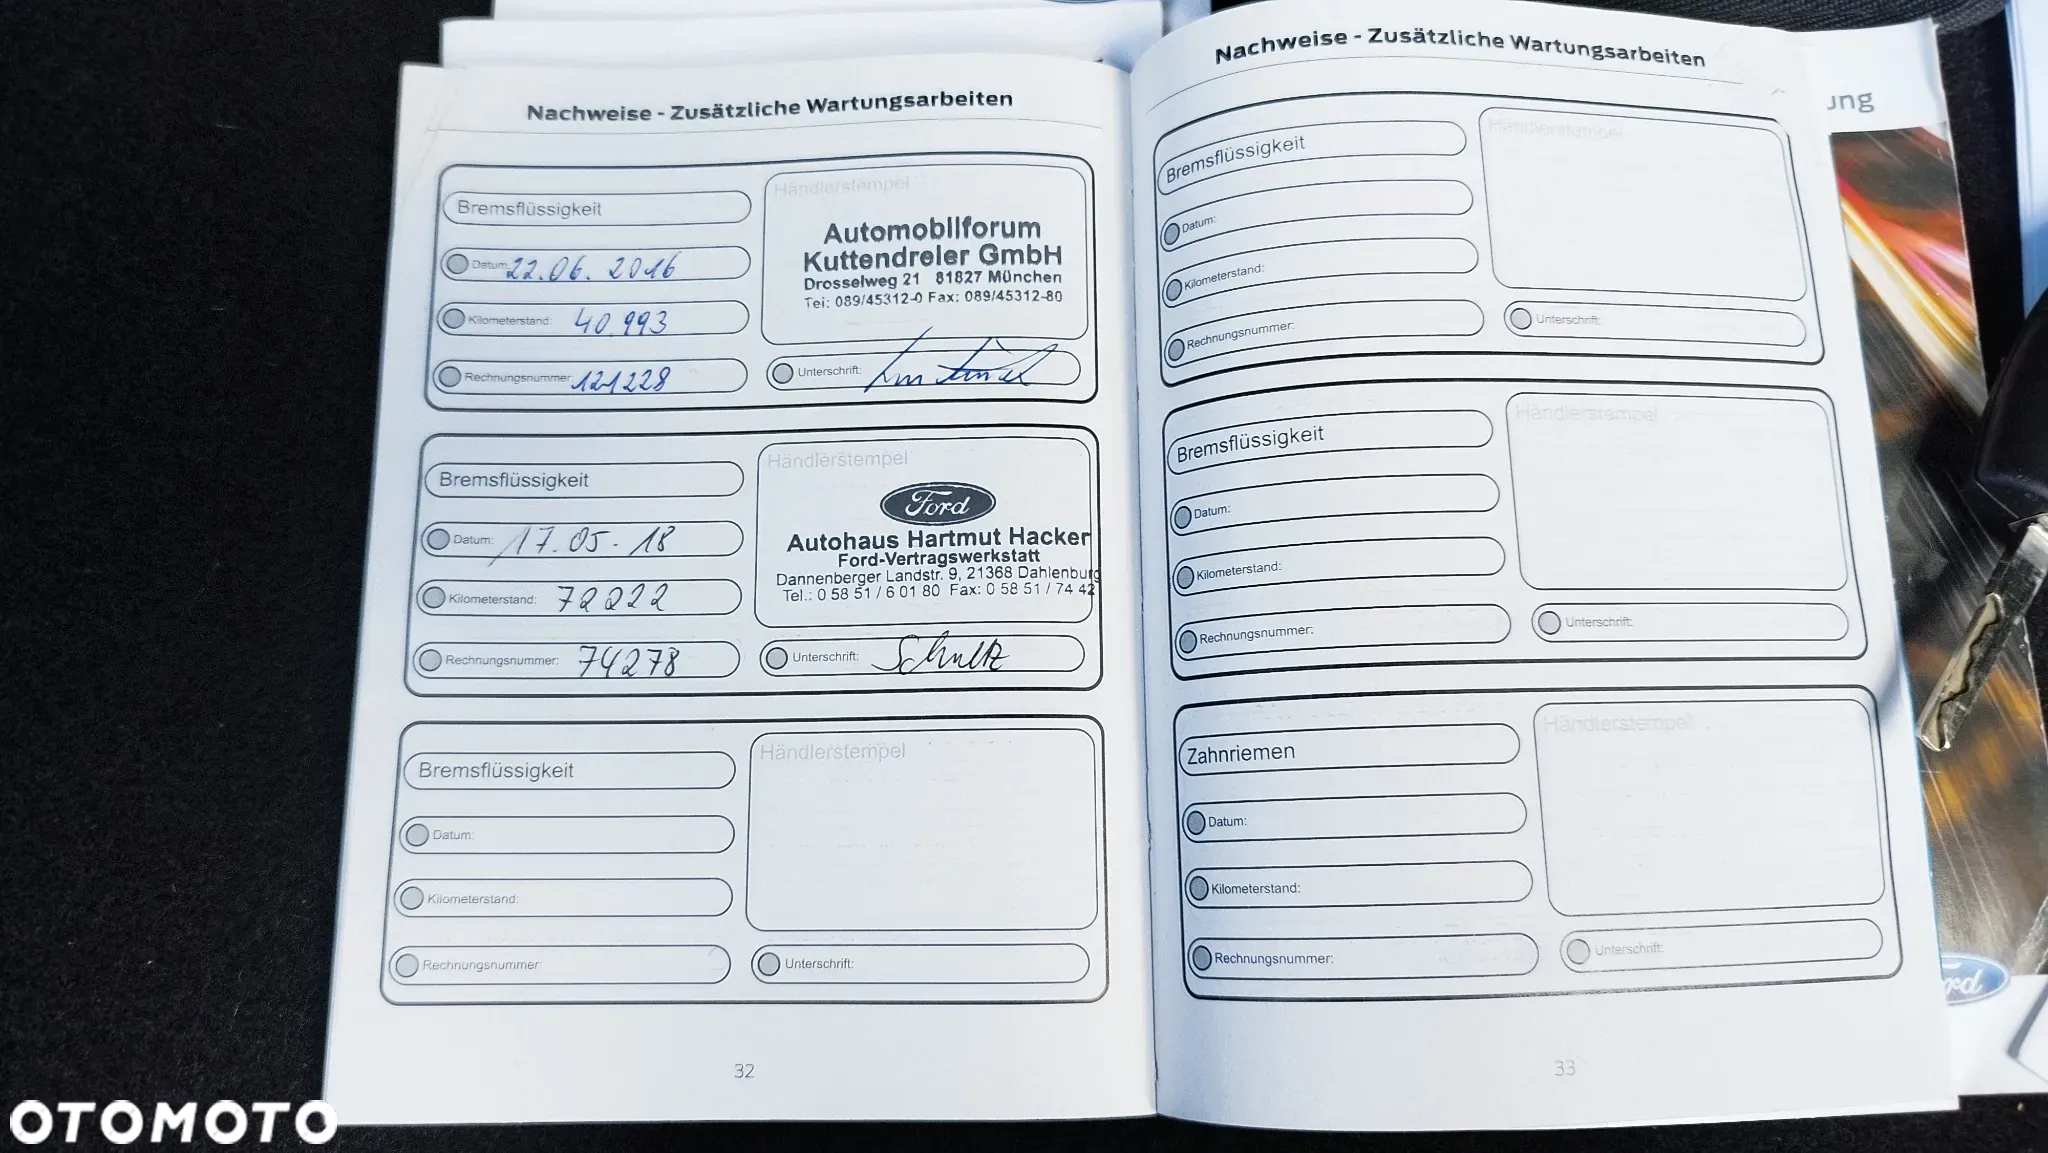 Nachweise - Zusätzliche Wartungsarbeiten
Bremsflüssigkeit
Datum: 22.06.2016
Kilometerstand: 40.993
Rechnungsnummer: 121228
Händlerstempel
Automobilforum
Kuttendreier GmbH
Drosselweg 21 81827 München
Tel: 089/45312-0 Fax: 089/45312-80
Unterschrift:
Bremsflüssigkeit
Datum: 17.05.18
Kilometerstand: 72222
Rechnungsnummer: 74278
Händlerstempel
Ford
Autohaus Hartmut Hacker
Ford-Vertragswerkstatt
Dannenberger Landstr. 9, 21368 Dahlenburg
Tel.: 0 58 51 / 6 01 80 Fax: 0 58 51 / 74 42
Unterschrift: Schultz
Bremsflüssigkeit
Datum:
Kilometerstand:
Rechnungsnummer:
Händlerstempel
Unterschrift:
32
Nachweise - Zusätzliche Wartungsarbeiten
Bremsflüssigkeit
Datum:
Kilometerstand:
Rechnungsnummer:
Händlerstempel
Unterschrift:
Bremsflüssigkeit
Datum:
Kilometerstand:
Rechnungsnummer:
Händlerstempel
Unterschrift:
Zahnriemen
Datum:
Kilometerstand:
Rechnungsnummer:
Händlerstempel
Unterschrift:
33
OTOMOTO